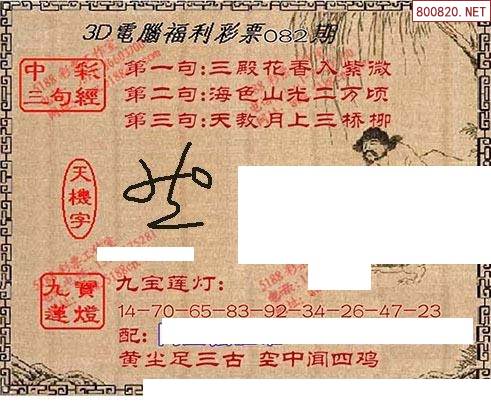 800820.NET
3D電腦福利彩票082期
中彩
三句經
第一句:三殿花香入紫微
第二句:海色山光二万顷
第三句:天教月上三桥柳
天機字
九寶
蓮燈
九宝莲灯:
14-70-65-83-92-34-26-47-23
配:
黄尘足三古 空中闻四鸡